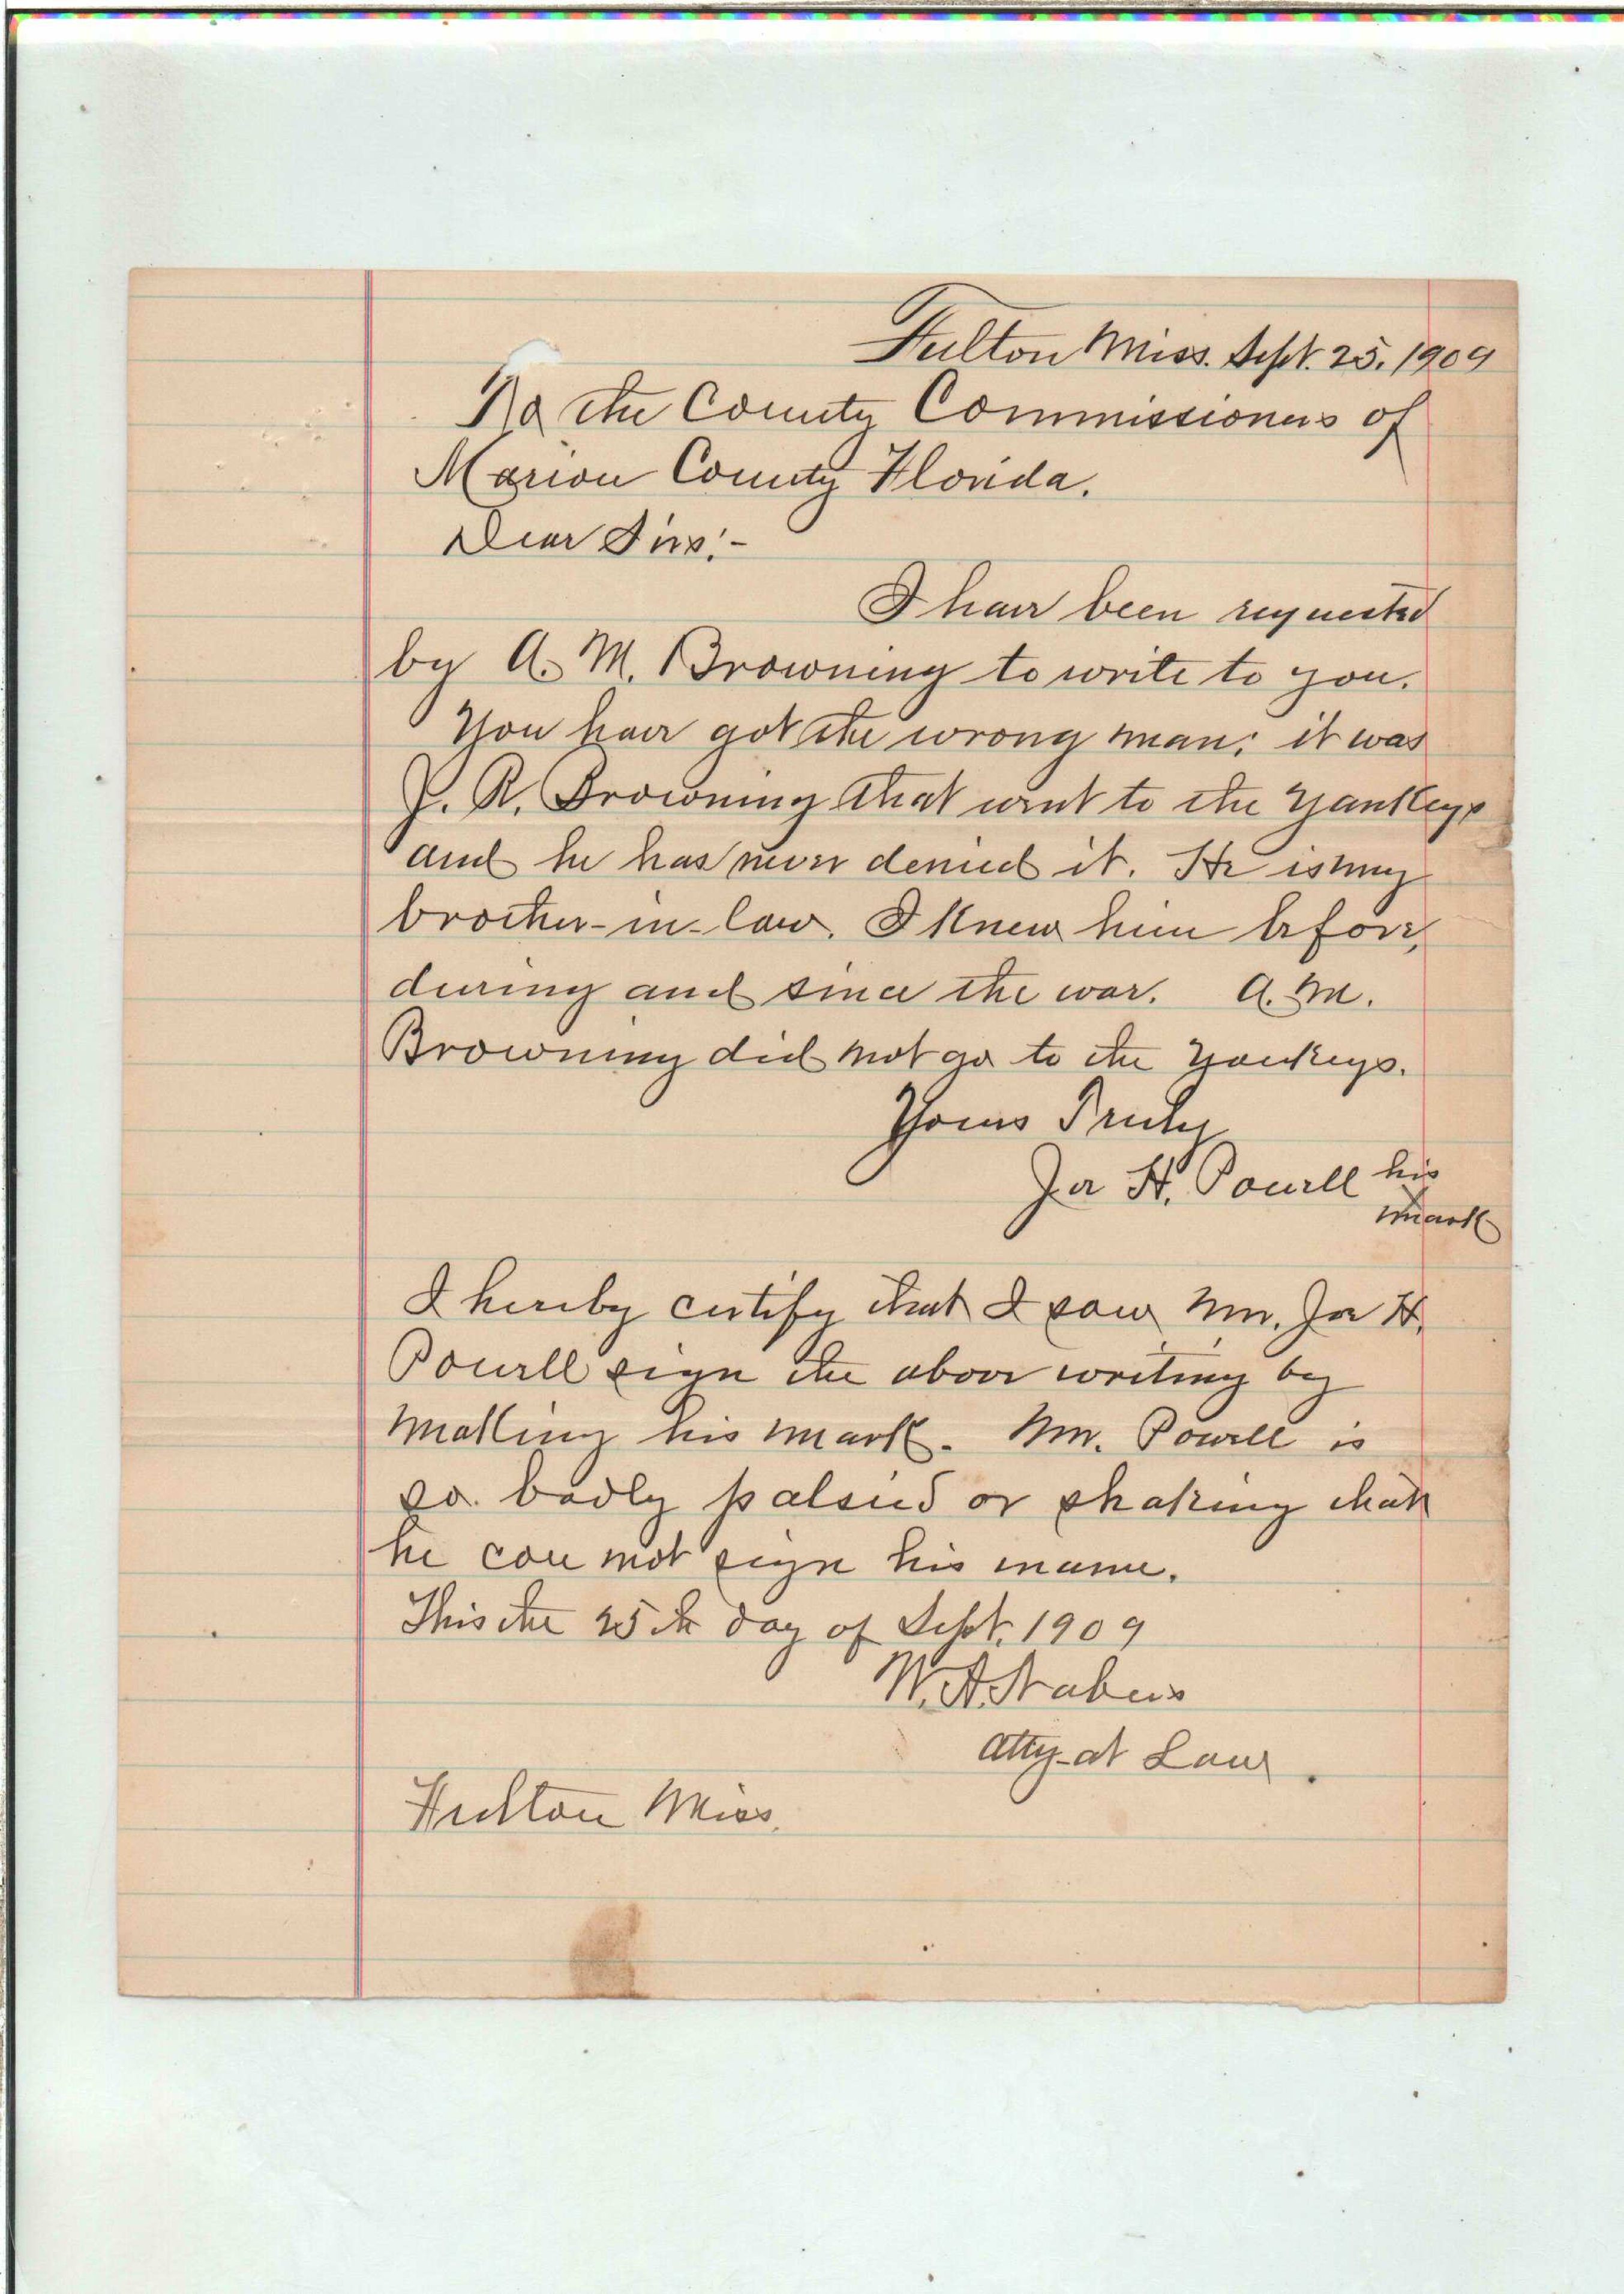 Fulton Miss. Sept. 25. 1909
To the County Commissioners of
Marion County Florida.
Dear Sirs:-
I have been requested
by A. M. Browning to write to you.
You have got the wrong man; it was
J. R. Browning that went to the Yankeys
and he has never denied it. He is my
brother-in-law. I knew him before,
during and since the war. A. M.
Browning did not go to the Yankeys.
Yours Truly
Joe H. Powell his
X
mark
I hereby certify that I saw Mr. Joe H.
Powell sign the above writing by
making his mark. Mr. Powell is
so badly palsied or shaking that
he can not sign his name.
This the 25th day of Sept. 1909
W. A. Nabers
Atty-at Law.
Fulton Miss.